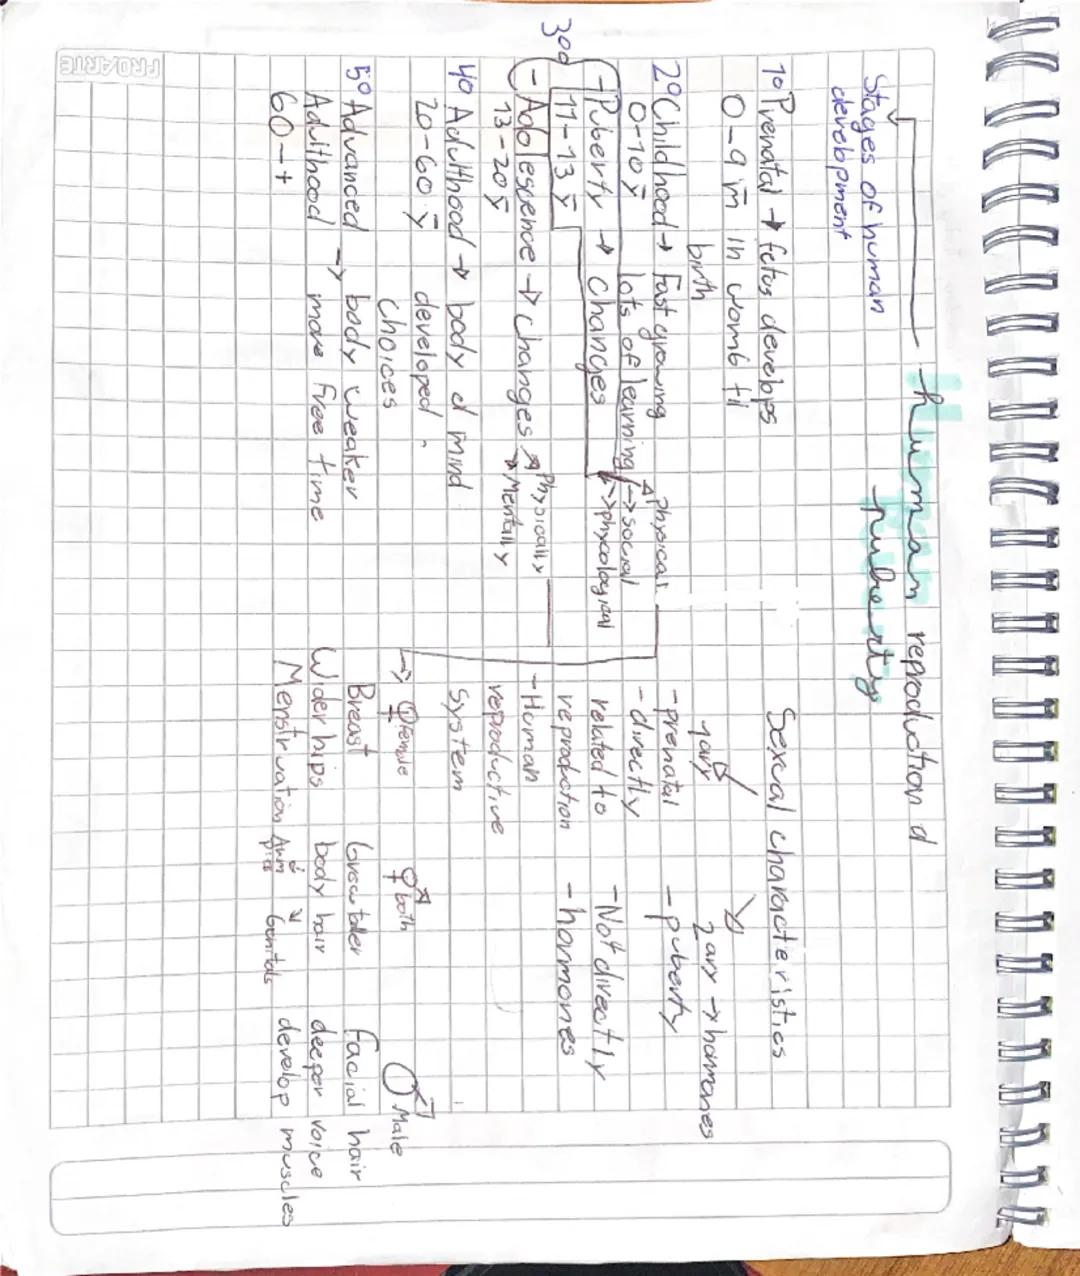 human reproduction d
puberty
Stages of human
development
1º Prenatal → fetus develops
0-9 m in womb til
birth
2º Childhood → Fast growing
0-10 y lots of learning
3º
- Puberty → changes
11-13 y
→ physical
→ social
→ phycological
- Adolescence → changes
13-20 y
→ Physically
→ Mentally
4º Adulthood → body d mind
20-60 y developed,
choices
5º Advanced → body weaker
Adulthood more free time
60-+
Sexual characteristics
1ary
- prenatal
- directly
related to
reproduction
- Human
reproductive
system
2ary → hormones
- puberty
- Not directly
- hormones
→ ♀ female
Breast
Wider hips
Menstruation
both
Grow taller
body hair
Arm
pits
Genitals
♂ Male
facial hair
deeper voice
develop muscles
PROARTE